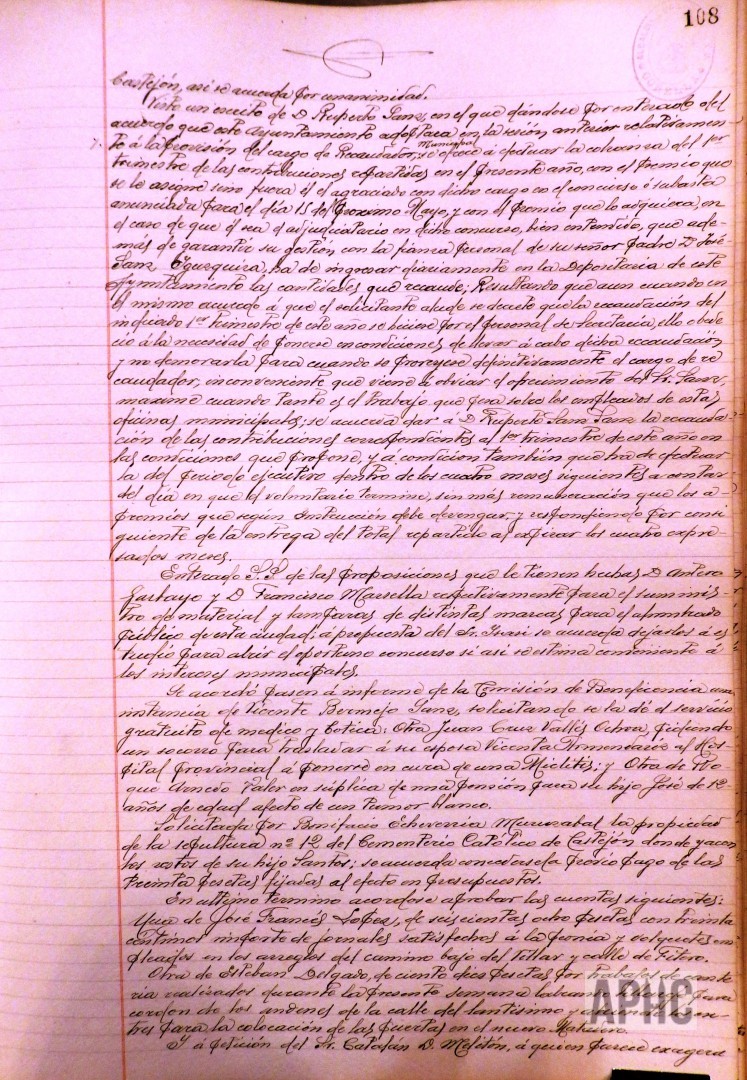 108
Castejón, así se acuerda por unanimidad.
Visto un escrito de D Ruperto Sanz, en el que dándose por enterado del
acuerdo que este Ayuntamiento adoptara en la sesión anterior relativamen-
te á la provisión del cargo de Recaudador Municipal, se ofrece á efectuar la cobranza del 1er
trimestre de las contribuciones repartidas en el presente año, con el premio que
se le asigne sino fuera él el agraciado con dicho cargo en el concurso ó subasta
anunciada para el día 15 del próximo Mayo, y con el premio que lo adquiera, en
el caso de que él sea el adjudicatario en dicho concurso, bien entendido, que ade-
más de garantir su gestión con la fianza personal de su señor padre D. José
Sanz, ha de ingresar diariamente en la Depositaria de este
Ayuntamiento las cantidades que recaude; Resultando que aun cuando en
el mismo acuerdo á que el solicitante alude se decrete que la recaudación del
indicado 1er trimestre de este año se hiciese por el personal de Secretaría, ello obede-
ció á la necesidad de ponerse en condiciones de llevar á cabo dicha recaudación
y no demorarla para cuando se proveyese definitivamente el cargo de re-
caudador; inconveniente que viene á obviar el ofrecimiento del Sr. Sanz,
maxime cuando tanto es el trabajo que pesa sobre los empleados de estas
oficinas municipales; se acuerda dar á D Ruperto Sanz Sanz la recauda-
ción de las contribuciones correspondientes al 1er trimestre de este año en
las condiciones que propone, y á condición también que ha de efectuar
la del periodo ejecutivo dentro de los cuatro meses siguientes á contar
del día en que el voluntario termine, sin más remuneración que los a-
premios que según Instrucción debe devengar, y respondiendo por consi-
guiente de la entrega del total repartido al expirar los cuatro expre-
sados meses.
Enterado S.S. de las proposiciones que le tienen hechas D Antero
y D Francisco Marsella respectivamente para el suminis-
tro de material y lamparas de distintas marcas para el alumbrado
público de esta ciudad; á propuesta del Sr. se acuerda dejarlos á es-
tudio para abrir el oportuno concurso si así se estima conveniente á
los intereses municipales.
Se acordó pasen á informe de la Comisión de Beneficencia una
instancia de Vicente Bermejo Sanz, solicitando se le dé el servicio
gratuito de medico y botica: Otra Juan Cruz Vallés Ochoa pidiendo
un socorro para trasladar á su esposa Vicenta Armendariz al Hos-
pital Provincial á ponerse en cura de una Mielitis; y Otra de Ro-
que Arnedo en súplica de una pensión para su hijo José de 12
años de edad afecto de un tumor blanco.
Solicitada por Bonifacio Echeverria Muruzabal la propiedad
de la sepultura nº 12 del Cementerio Católico de Castejón donde yacen
los restos de su hijo Santos; se acuerda concedersela previo pago de las
treinta pesetas fijadas al efecto en presupuestos.
En ultimo termino acordose aprobar las cuentas siguientes:
Una de José Francés Lopez, de seiscientas ocho pesetas con treinta
céntimos importe de jornales satisfechos á la peonia y volquetes em-
pleados en los arreglos del camino bajo del Villar y calle de Fitero.
Otra de Esteban Delgado, de ciento diez pesetas por trabajos de cante-
ria realizados durante la presente semana labrando piedra para
cordon de los andenes de la calle del Santísimo y
para la colocación de las puertas en el nuevo Matadero.
Y á petición del Sr. Catalán D. Melitón, á quien parece exagera
APHC